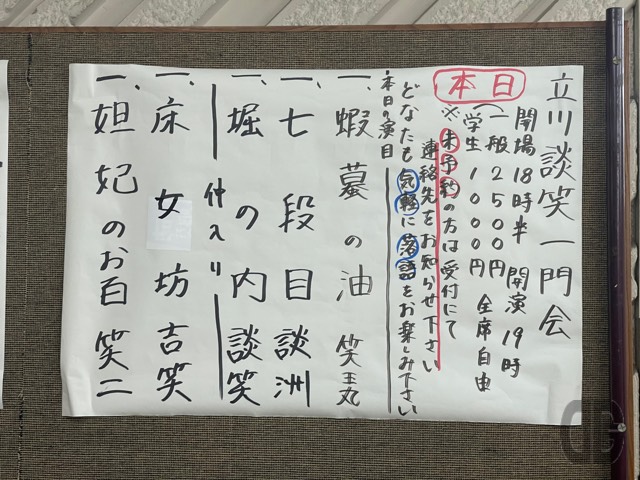 立川談笑一門会
本日
開場18時半 開演19時
一般2500円 全席自由
学生1000円
※未予約の方は受付にて
連絡先をお知らせ下さい
どなたも気軽に落語をお楽しみ下さい
本日の演目
一、蝦蟇の油 笑王丸
一、七段目 談洲
一、堀の内 談笑
仲入り
一、床女坊 吉笑
一、妲妃のお百 笑二